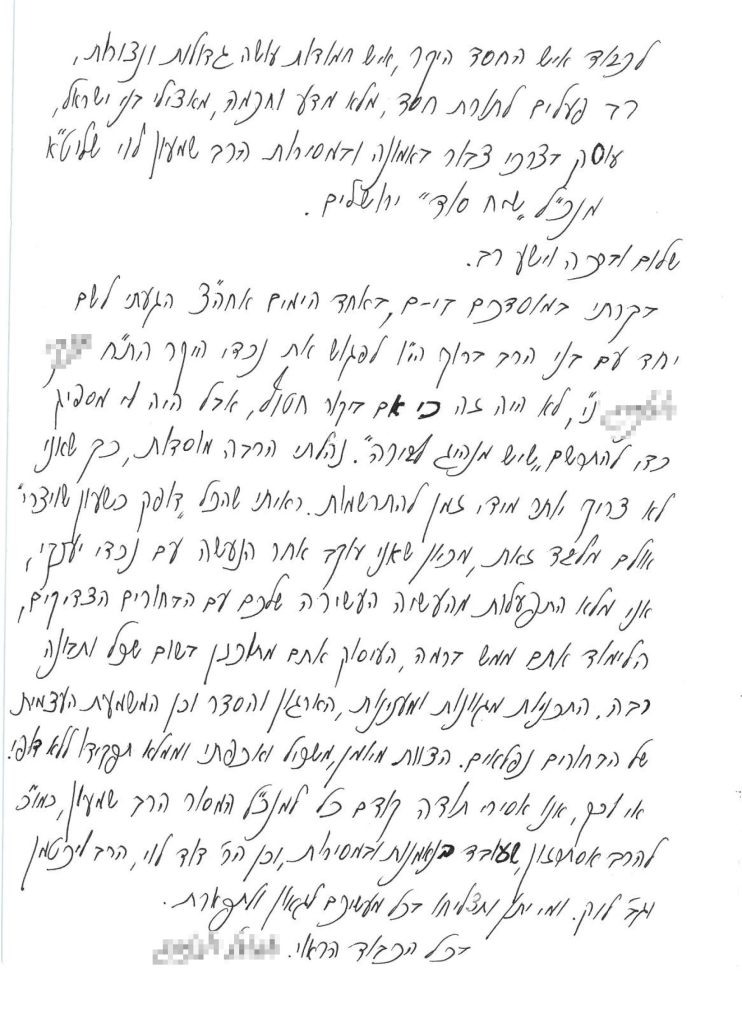 לכבוד איש החסד היקר, איש חמודות עושה גדולות ונצורות,
רב פעלים לתורת חסד, מלא מדע וחכמה, מאצילי בני ישראל,
עוסק בצרכי צבור באמונה ובמסירות הרב שמעון לוי שליט"א
מנכ"ל "שח סוד" ירושלים.
שלום וברכה וישע רב.
בקרתי במוסדכם בי-ם, באחד הימים אחה"צ הגעתי לשם
יחד עם בני הרב ברוך הי"ו לפגוש את נכדי היקר הת"ח
ני"ו, לא היה זה כי אם ביקור חטוף, אבל היה לי מספיק
כדי להתרשם "שיש מנהיג לבירה". נהלתי הרבה מוסדות, כך שאני
לא צריך יותר מידי זמן להתרשמות. ראיתי שהכל "דופק כשעון שוויצרי"
אולם מלבד זאת, מכיון שאני עוקב אחר הנעשה עם נכדי יענקי,
אני מלא התפעלות מהעשיה העשירה שלכם עם הבחורים הצדיקים,
הלימוד אתם ממש ברמה, העיסוק אתם מתוכנן בשום שכל ותבונה
רבה. התכניות מגוונות ומענינות, הארגון והסדר וכן המשמעת העצמית
של הבחורים נפלאים. הצוות מיומן, משכיל ואכפתי וממלא תפקידו ללא דופי.
אי לכך, אנו אסירי תודה קודם כל למנכ"ל המסור הרב שמעון, כמו"כ
להרב אסתרזון, שעובד בנאמנות ובמסירות, וכן הר' דוד לוי, הרב ליכטמן
וגב' לוק. ומי יתן ותצליחו בכל מעשיכם לגאון ולתפארת.
בכל הכבוד הראוי.